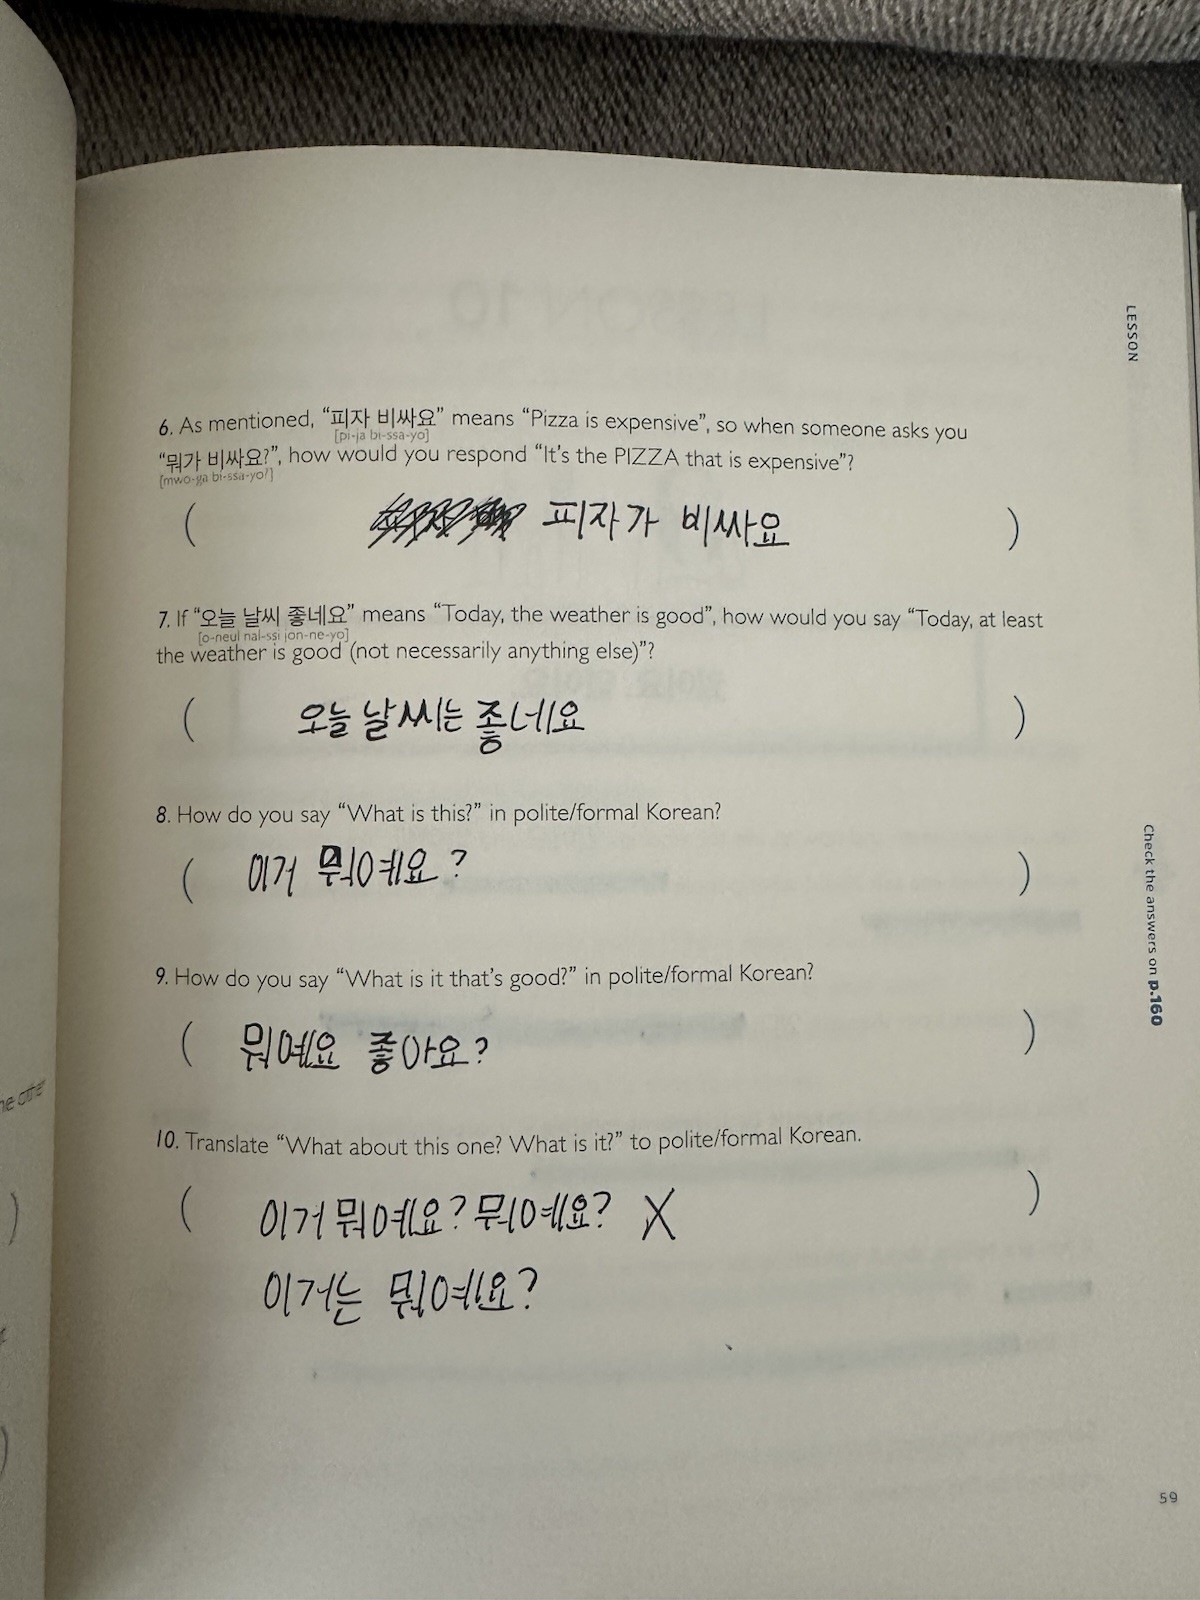 LESSON
6. As mentioned, “피자 비싸요” means “Pizza is expensive”, so when someone asks you
[pi-ja bi-ssa-yo]
“뭐가 비싸요?”, how would you respond “It’s the PIZZA that is expensive”?
[mwo-ga bi-ssa-yo?]
( 피자가 비싸요 )
7. If “오늘 날씨 좋네요” means “Today, the weather is good”, how would you say “Today, at least
[o-neul nal-ssi jon-ne-yo]
the weather is good (not necessarily anything else)”?
( 오늘 날씨는 좋네요 )
8. How do you say “What is this?” in polite/formal Korean?
( 이거 뭐예요? )
9. How do you say “What is it that’s good?” in polite/formal Korean?
( 뭐예요 좋아요? )
10. Translate “What about this one? What is it?” to polite/formal Korean.
( 이거 뭐예요? 뭐예요? X )
이거는 뭐예요?
Check the answers on p.160
59